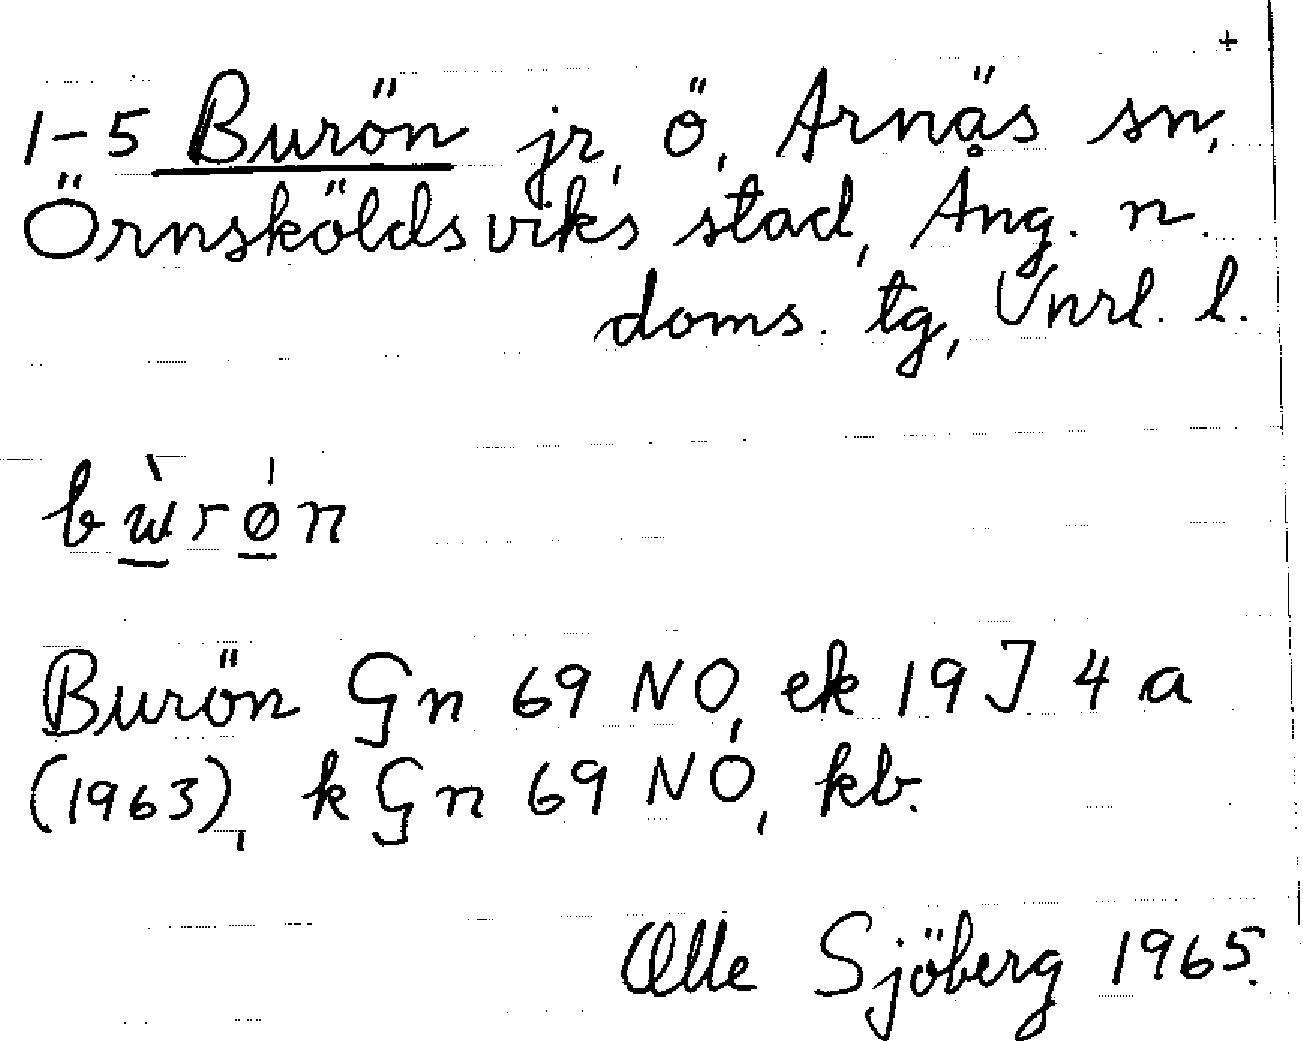 +
1-5 Burön jr, ö, Arnäs sn,
Örnsköldsviks stad, Ång. n.
doms. tg, Vnrl. l.
bùrǿn
Burön Gn 69 NO, ek 19 J 4 a
(1963), k Gn 69 NO, kb.
Olle Sjöberg 1965.